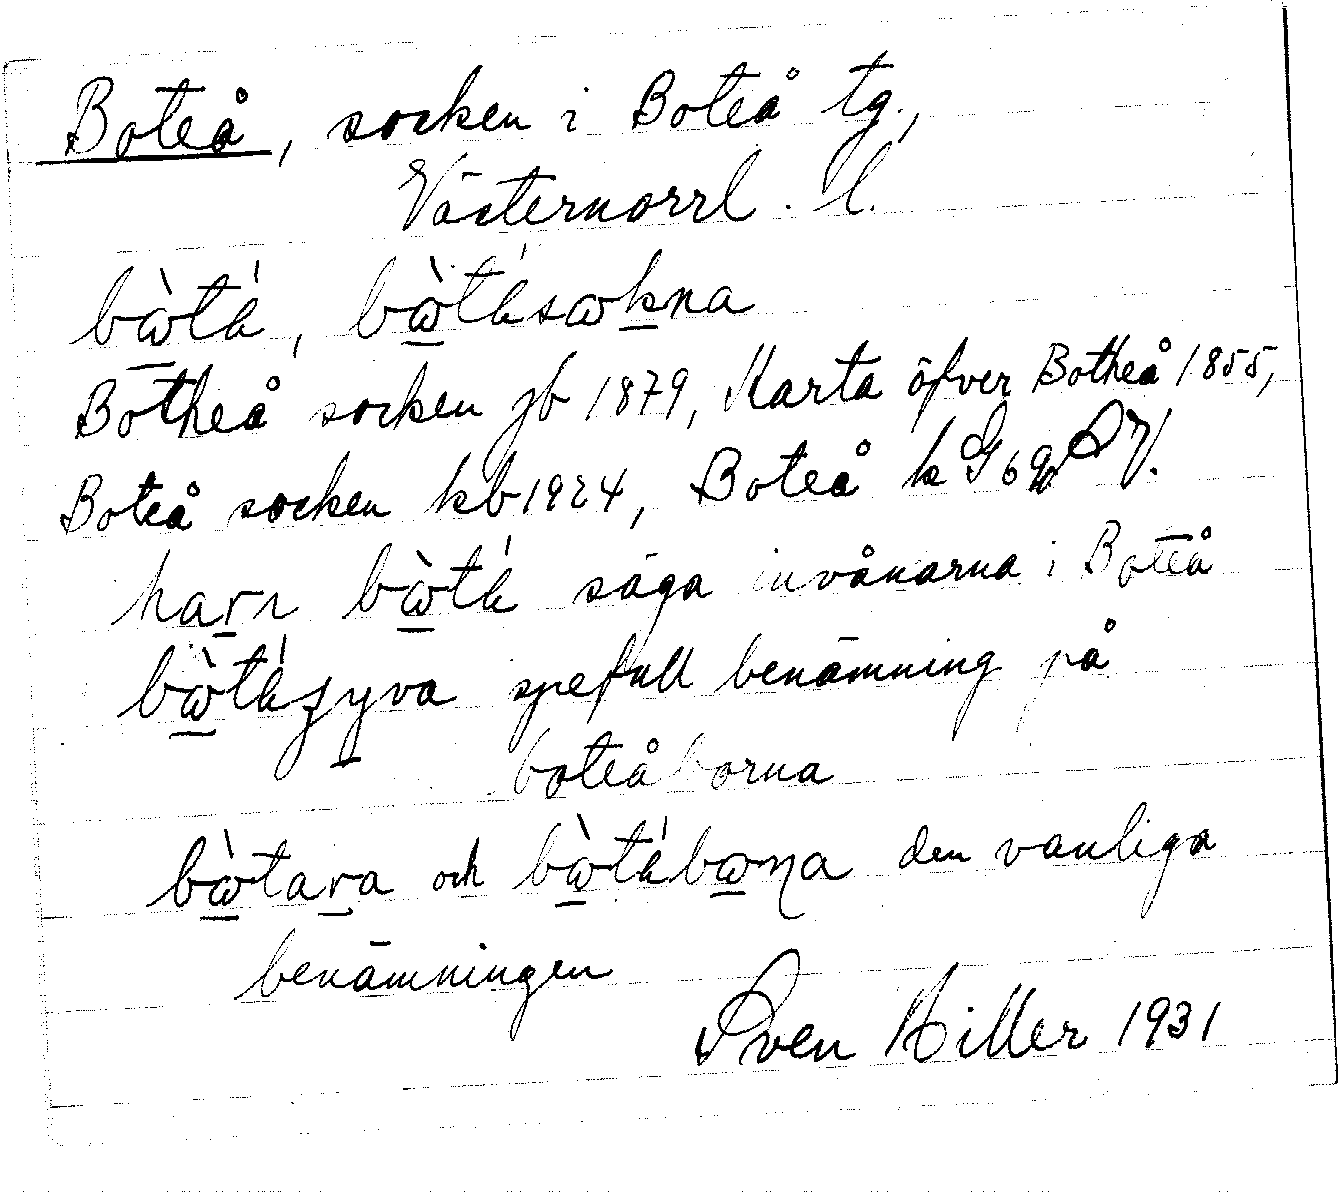 Boteå, socken i Boteå tg.,
Västernorrl. l.
bὼtá, bὼtásωkna
Botheå socken jb 1879, Karta öfver Botheå 1855,
Boteå socken kb 1924, Boteå k G 69
harn bὼtá säga invånarna i Boteå
bὼtáʒyva spefull benämning på
boteåborna
bὼtara och bὼtábωɳa den vanliga
benämningen
Sven Hiller 1931